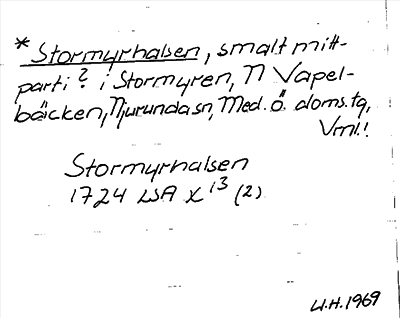 *Stormyrhalsen, smalt mitt-
parti? i Stormyren, N Vapel-
bäcken, Njurunda sn, Med. Ö. doms. tg,
Vml.!
Stormyrhalsen
1724 LSA X 13 (2)
U.H. 1969